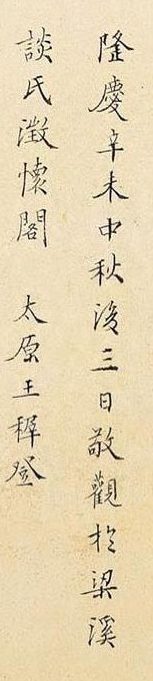 隆慶辛未中秋後三日敬觀於梁溪
談氏澂懷閣 太原王穉登